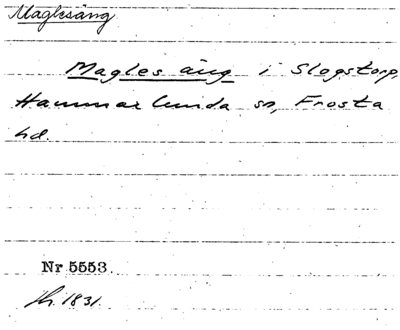 Maglesäng
Magles äng i Slogstorp,
Hammarlunda sn, Frosta
hd.
Nr 5553.
1831.